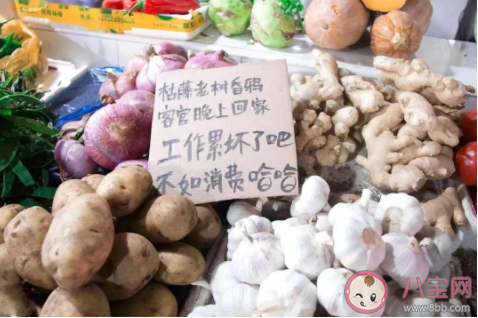 枯藤老树昏鸦
客官晚上回家
工作累坏了吧
不如消费哈哈
八宝网
www.8bb.com